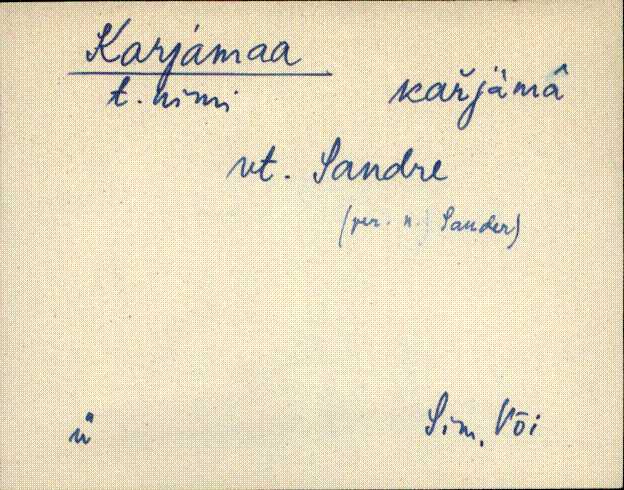 Karjamaa
t. nimi kařjämâ
vt. Sandre
(per. n. Sander)
ü Sim, Või